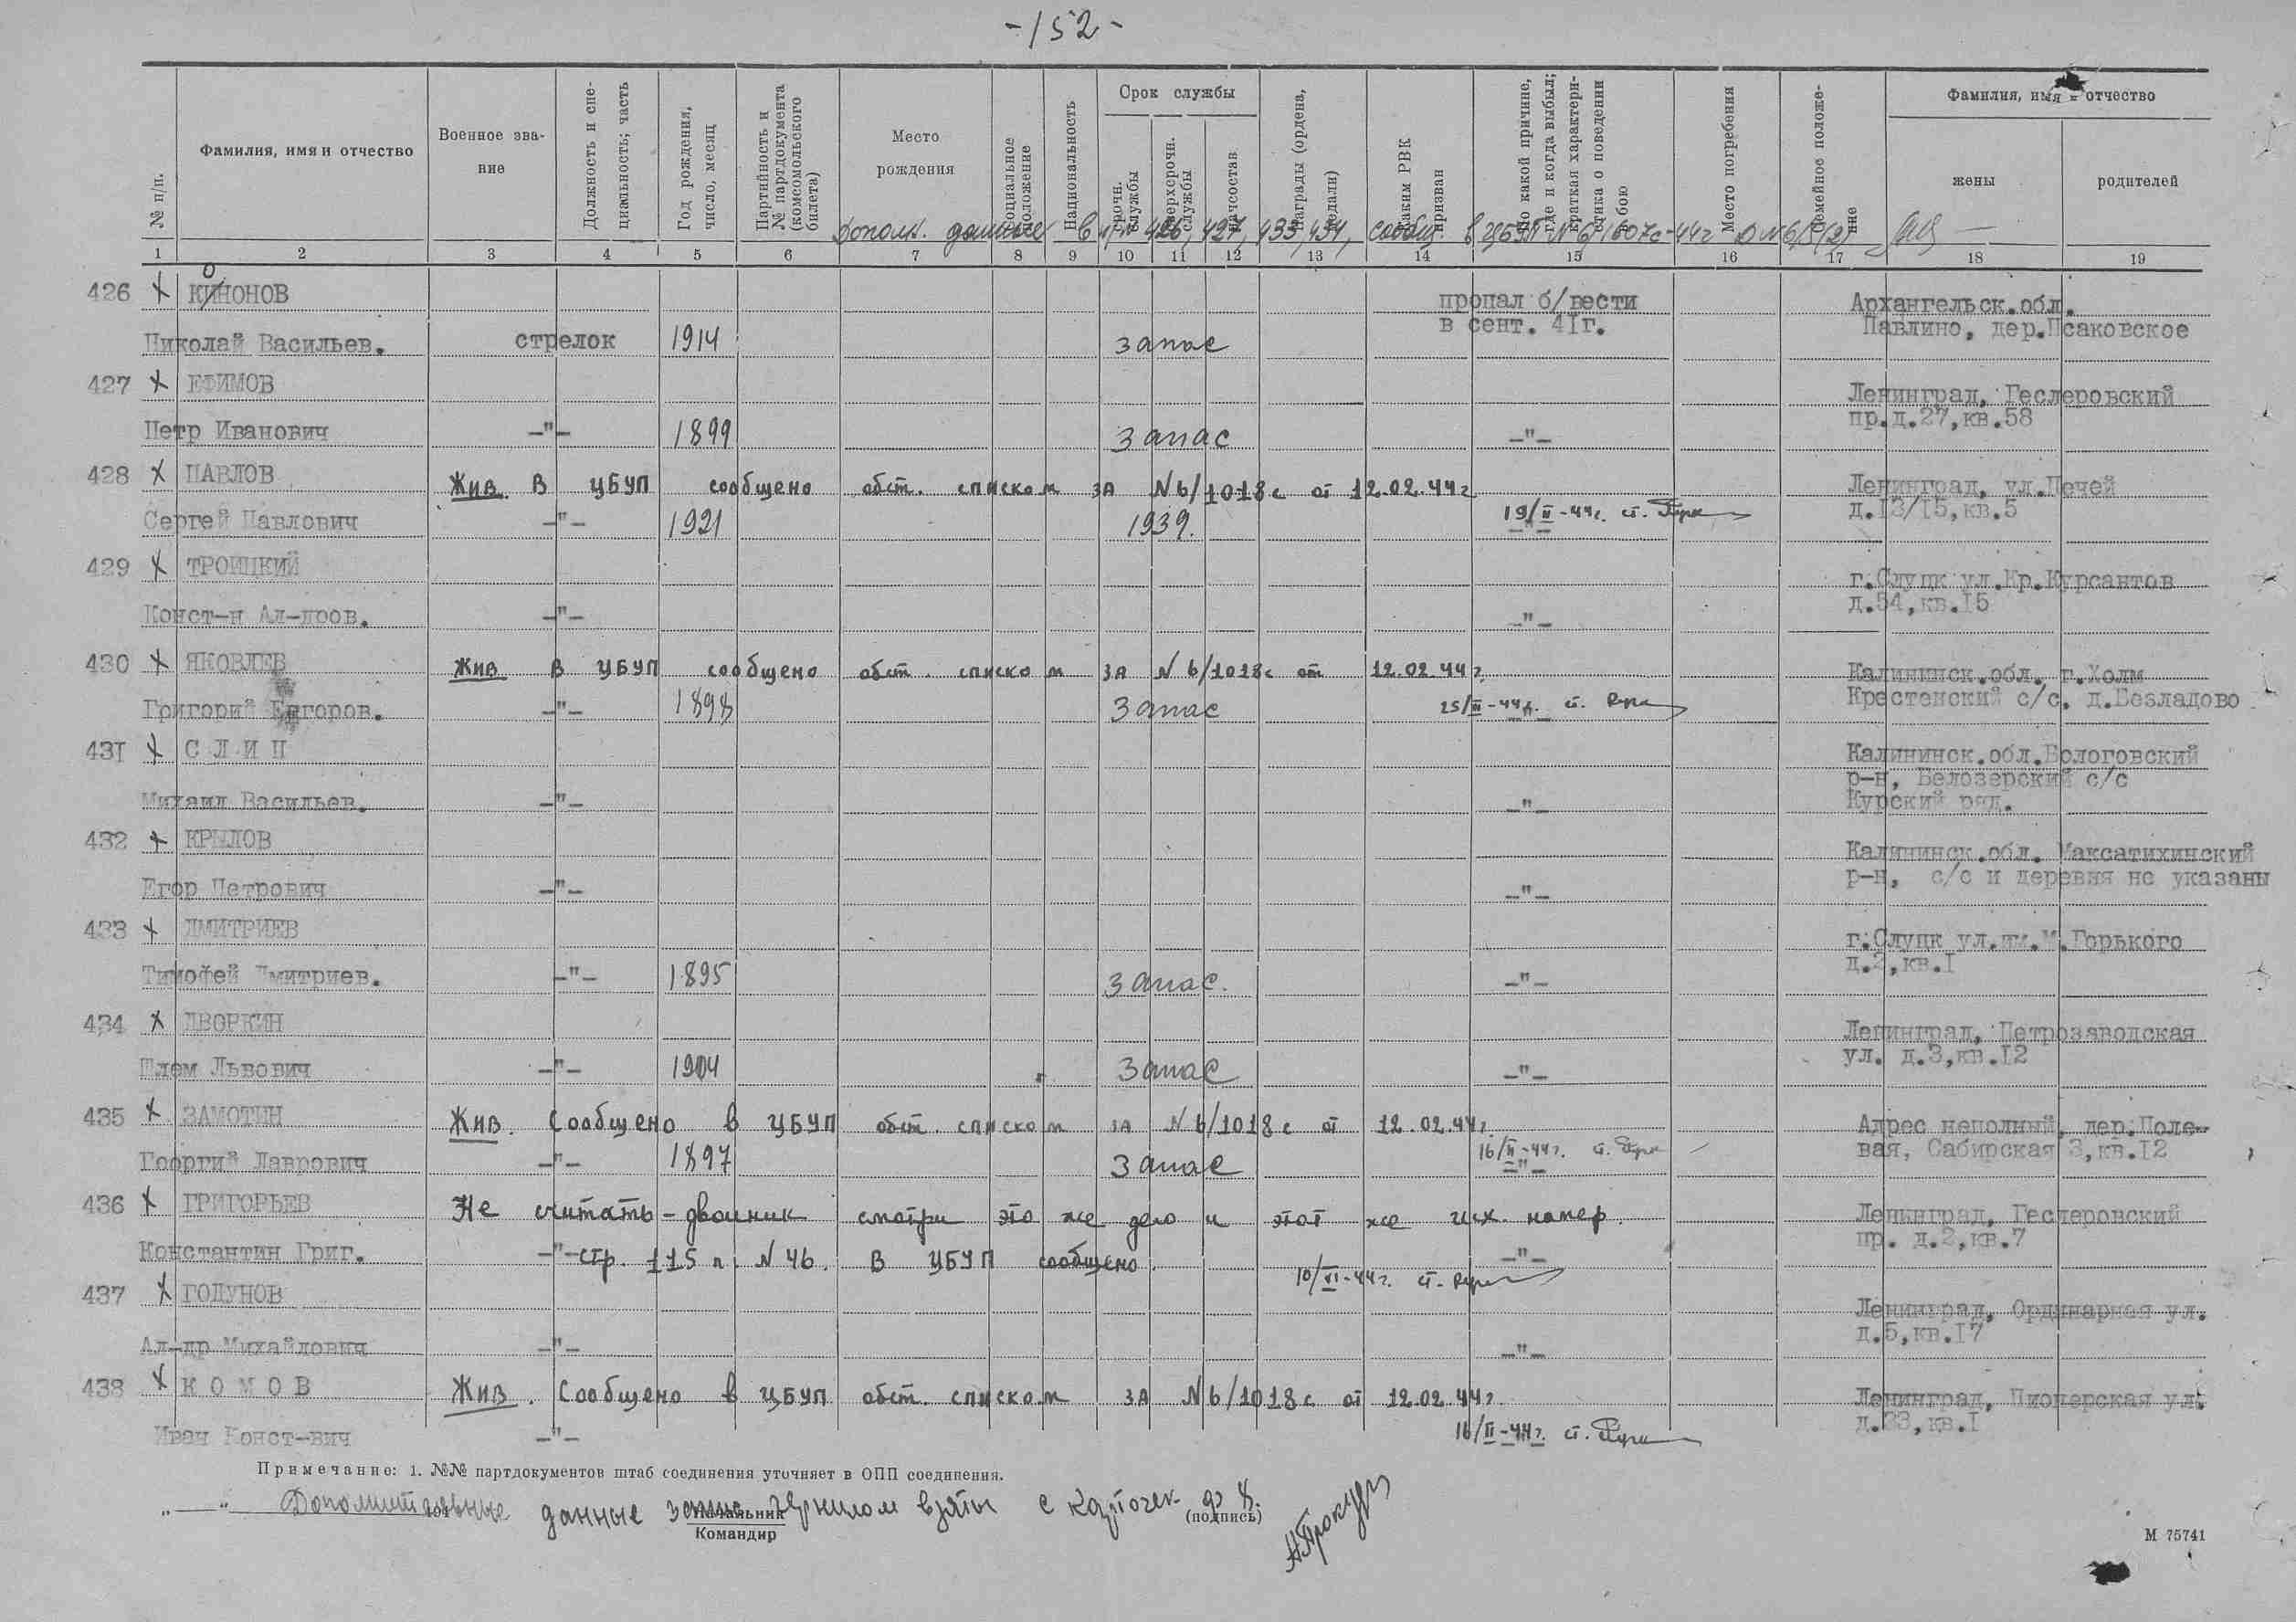 -152-
№ п/п.
Фамилия, имя и отчество
Военное зва-
ние
Должность и спе-
циальность; часть
Год рождения,
число, месяц
Партийность и
№ партдокумента
(комсомольского
билета)
Место
рождения
Социальное
положение
Национальность
Срок службы
срочн.
службы
сверхсрочн.
службы
начсостав
Награды (ордена,
медали)
Каким РВК
призван
По какой причине,
где и когда выбыл;
краткая характери-
стика о поведении
в бою
Место погребения
Семейное положе-
ние
Фамилия, имя и отчество
жены
родителей
Дополн. данные в п/п 426, 427, 433, 434, сообщ. в ЦБУП №
1 2 3 4 5 6 7 8 9 10 11 12 13 14 15 16 17 18 19
426 КОНОНОВ пропал б/вести Архангельск.обл.
Николай Васильев. стрелок 1914 запас в сент. 4Iг. Павлино, дер.Псаковское
427 ЕФИМОВ Ленинград, Геслеровский
Петр Иванович -"- 1899 запас -"- пр.д.27,кв.58
428 ПАВЛОВ Жив. В ЦБУП сообщено обст. списком за №6/1018с от 12.02.44г Ленинград, ул.Печей
Сергей Павлович -"- 1921 1939. 19/II-44г. ст. -"- д.I3/I5,кв.5
429 ТРОИЦКИЙ г.Слуцк ул.Кр.Курсантов
Конст-н Ал-дров. -"- -"- д.54,кв.I5
430 ЯКОВЛЕВ Жив В ЦБУП сообщено обст. списком за №6/1018с от 12.02.44г. Калининск.обл. г.Холм
Григорий Егоров. -"- 1898 запас 25/III-44г. ст. Крестенский с/с. д.Безладово
43I СЛИП Калининск.обл.Бологовский
р-н, Белозерский с/с
Михаил Васильев. -"- -"- Курский ряд.
432 КРЫЛОВ Калининск.обл. Максатихинский
Егор Петрович -"- -"- р-н, с/с и деревня не указаны
433 ДМИТРИЕВ г.Слуцк ул.им.М.Горького
Тимофей Дмитриев. -"- 1895 запас. -"- д.2,кв.I
434 ДВОРКИН Ленинград, Петрозаводская
Шлем Львович -"- 1904 запас -"- ул. д.3,кв.I2
435 ЗАМОТИН Жив. Сообщено в ЦБУП обст. списком за №6/1018с от 12.02.44г. Адрес неполный, дер.Поле-
Георгий Лаврович -"- 1897 запас 16/II-44г. ст. -"- вая, Сабирская 3,кв.I2
436 ГРИГОРЬЕВ Не считать-двойник смотри это же дело и этот же исх. номер. Ленинград, Геслеровский
Константин Григ. -"- стр. 115 п. №46. В ЦБУП сообщено. -"- пр. д.2,кв.7
10/VI-44г. ст.
437 ГОДУНОВ Ленинград, Ординарная ул.
Ал-др Михайлович -"- -"- д.5,кв.I7
438 КОМОВ Жив. Сообщено в ЦБУП обст. списком за №6/1018с от 12.02.44г. Ленинград, Пионерская ул.
Иван Конст-вич -"- 16/II-44г. ст. д.33,кв.I
Примечание: 1. №№ партдокументов штаб соединения уточняет в ОПП соединения.
„—“ Дополнительные данные чернилом взяты с карточек
Начальник
Командир
(подпись)
М 75741